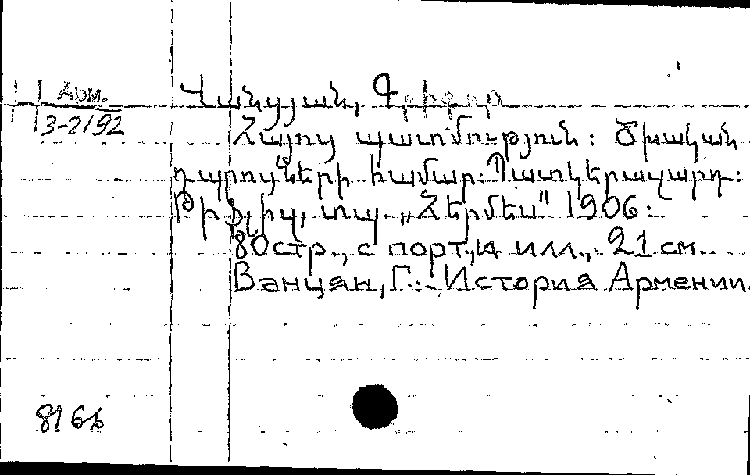 Арм.
3-2192
Վանցյան, Գրիգոր
Հայոց պատմություն: Ծխական
դպրոցների համար: Պատկերազարդ:
Թիֆլիս, տպ. „Հերմես" 1906.
80стр., с порт. и илл., 21 см.
Ванцян, Г.: История Армении.